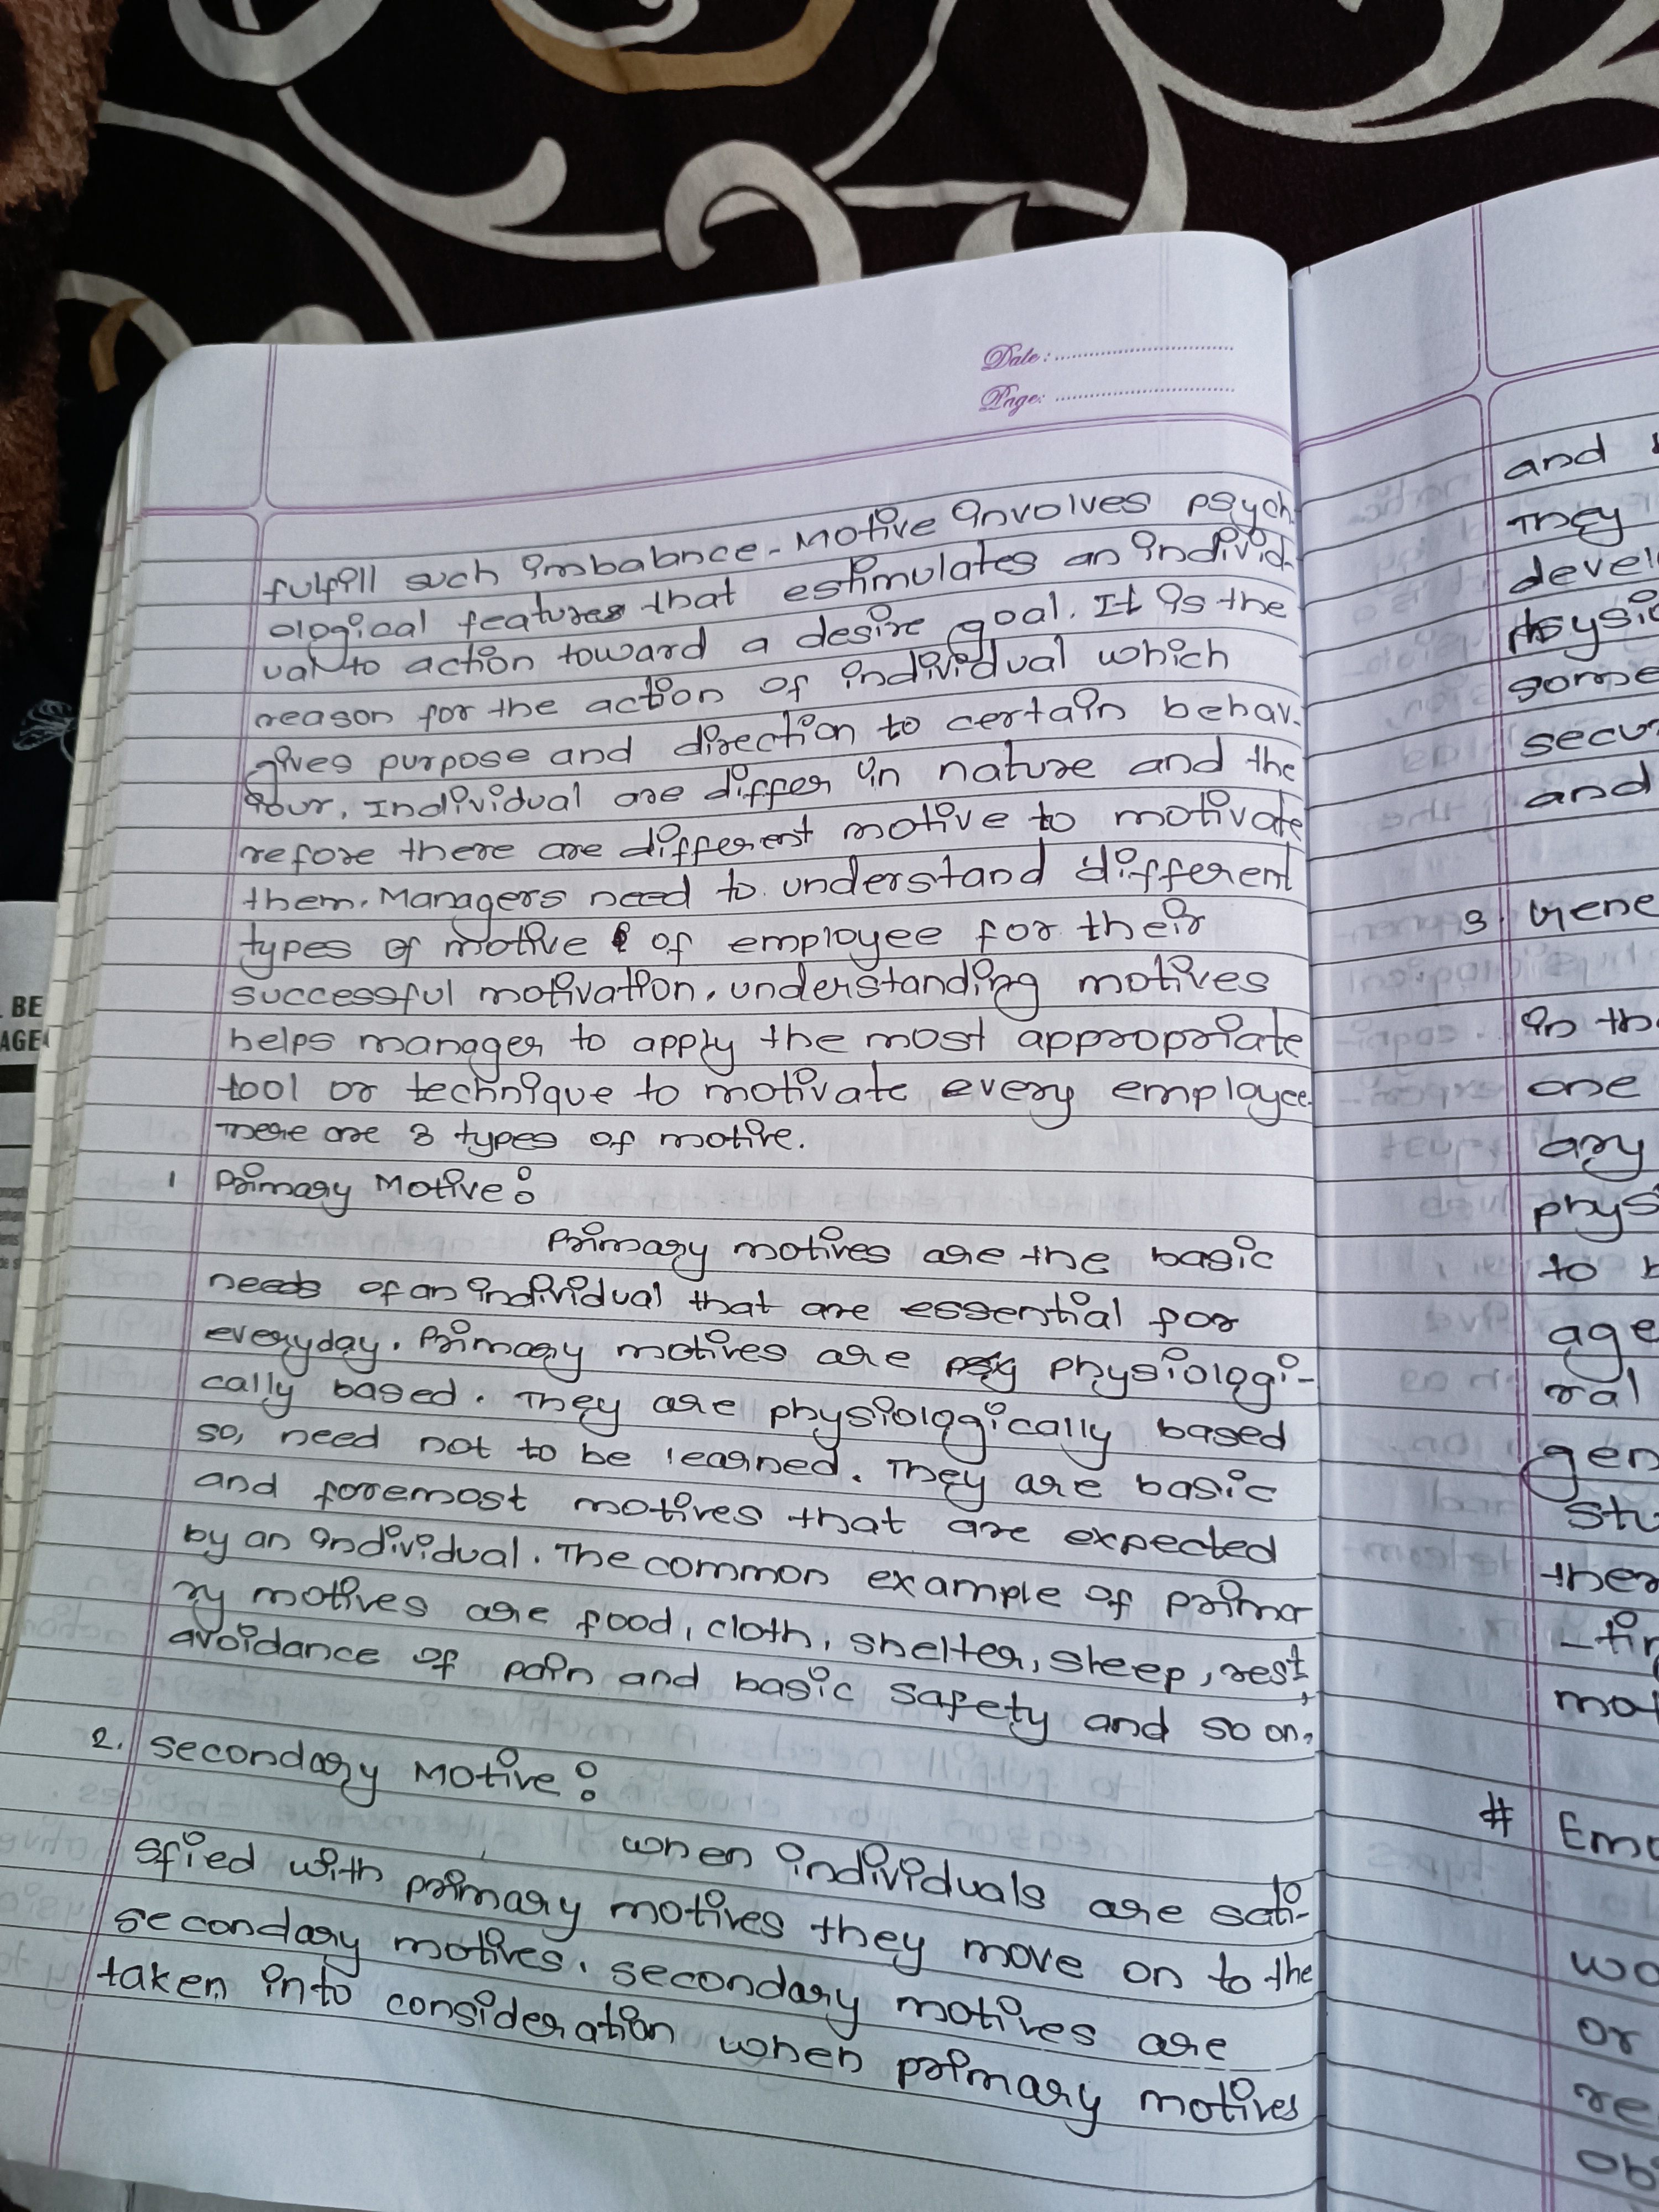 Date: ..............................
Page: ..............................
fulfill such imbalance. Motive involves psych
ological features that estimulates an individ-
ual to action toward a desire goal. It is the
reason for the action of individual which
gives purpose and direction to certain behav-
iour. Individual are differ in nature and the
refore there are different motive to motivate
them. Managers need to understand different
types of motive of employee for their
successful motivation. understanding motives
helps manager to apply the most appropriate
tool or technique to motivate every employee.
There are 3 types of motive.
1 Primary Motive:
Primary motives are the basic
needs of an individual that are essential for
everyday. Primary motives are physiologi-
cally based. They are physiologically based
so, need not to be learned. They are basic
and foremost motives that are expected
by an individual. The common example of prima
ry motives are food, cloth, shelter, sleep, rest,
avoidance of pain and basic safety and so on.
2. Secondary Motive:
when individuals are sati-
sfied with primary motives they move on to the
secondary motives. secondary motives are
taken into consideration when primary motives
and
They
devel
some
secur
and
3. Gene
in th
are
ary
phys
to b
age
ral
gen
stu
ther
mot
# Emo
wo
or
re
ob
BE
AGE